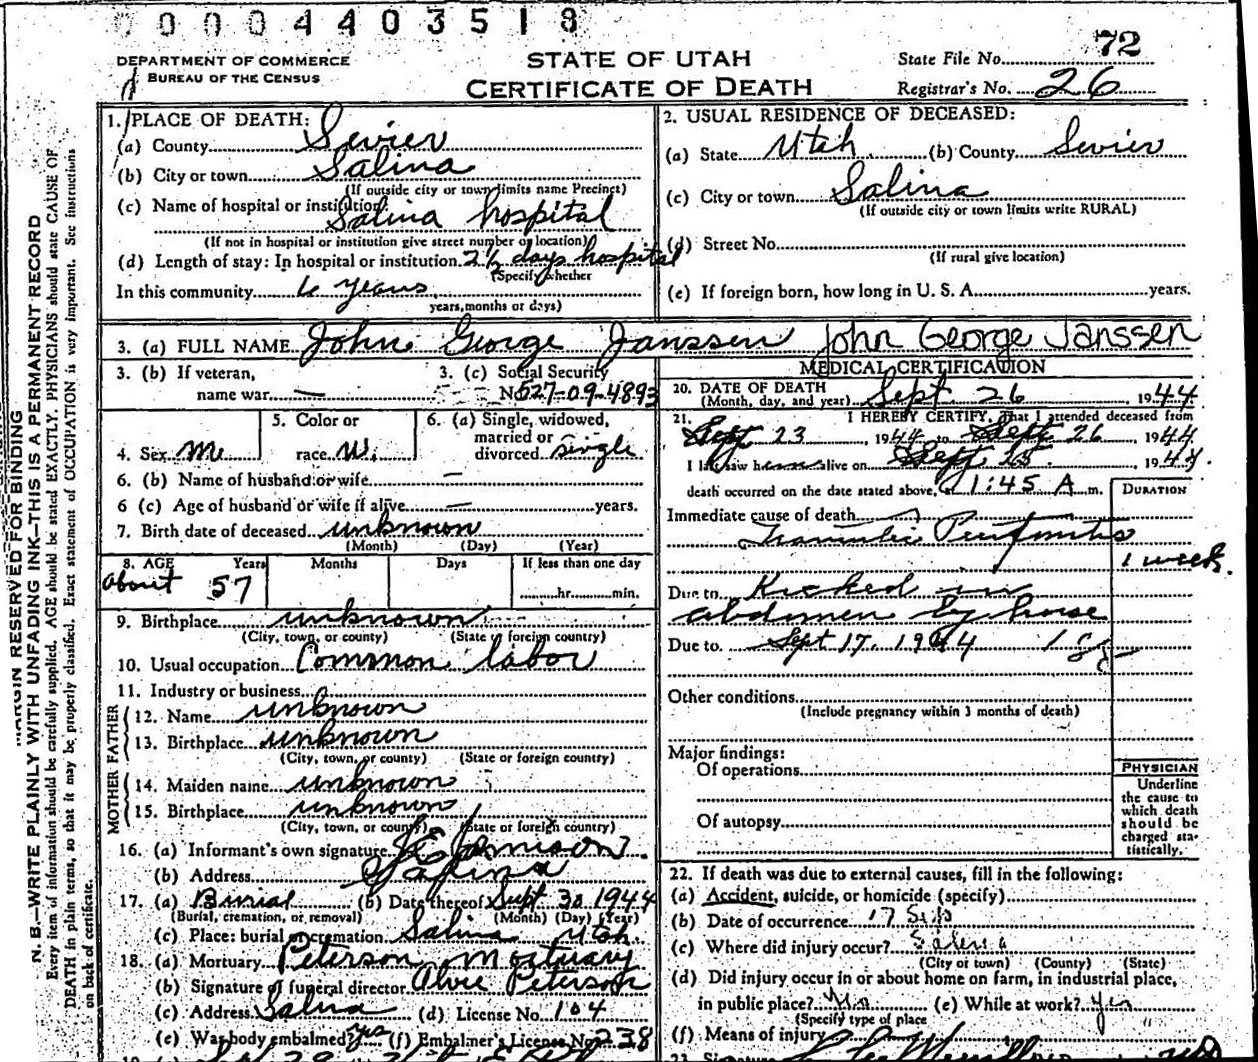 0000440351 8
DEPARTMENT OF COMMERCE
BUREAU OF THE CENSUS
STATE OF UTAH
CERTIFICATE OF DEATH
State File No. 72
Registrar's No. 26
MARGIN RESERVED FOR BINDING
N. B.—WRITE PLAINLY WITH UNFADING INK—THIS IS A PERMANENT RECORD
Every item of information should be carefully supplied. AGE should be stated EXACTLY. PHYSICIANS should state CAUSE OF
DEATH in plain terms, so that it may be properly classified. Exact statement of OCCUPATION is very important. See instructions
on back of certificate.
1. PLACE OF DEATH:
(a) County Sevier
(b) City or town Salina
(If outside city or town limits name Precinct)
(c) Name of hospital or institution:
Salina hospital
(If not in hospital or institution give street number or location)
(d) Length of stay: In hospital or institution 2½ days hospital
(Specify whether
In this community 6 years
years, months or days)
2. USUAL RESIDENCE OF DECEASED:
(a) State Utah (b) County Sevier
(c) City or town Salina
(If outside city or town limits write RURAL)
(d) Street No.
(If rural give location)
(e) If foreign born, how long in U. S. A. years.
3. (a) FULL NAME John George Janssen John George Janssen
3. (b) If veteran,
name war —
3. (c) Social Security
No 527-09-4893
4. Sex M
5. Color or
race W.
6. (a) Single, widowed,
married or
divorced single
6. (b) Name of husband or wife —
6 (c) Age of husband or wife if alive — years.
7. Birth date of deceased unknown
(Month) (Day) (Year)
8. AGE Years Months Days If less than one day
about 57 hr. min.
9. Birthplace unknown
(City, town, or county) (State or foreign country)
10. Usual occupation Common labor
11. Industry or business
FATHER
12. Name unknown
13. Birthplace unknown
(City, town, or county) (State or foreign country)
MOTHER
14. Maiden name unknown
15. Birthplace unknown
(City, town, or county) (State or foreign country)
16. (a) Informant's own signature
(b) Address Salina
17. (a) Burial (b) Date thereof Sept 30 1944
(Burial, cremation, or removal) (Month) (Day) (Year)
(c) Place: burial or cremation Salina Utah.
18. (a) Mortuary Peterson Mortuary
(b) Signature of funeral director Alvie Peterson
(c) Address Salina (d) License No. 104
(e) Was body embalmed? yes (f) Embalmer's License No. 238
MEDICAL CERTIFICATION
20. DATE OF DEATH
(Month, day, and year) Sept. 26, 1944
21. I HEREBY CERTIFY, That I attended deceased from
Sept 23, 1944 to Sept 26, 1944
I last saw him alive on Sept 25, 1944.
death occurred on the date stated above, at 1:45 A m.
DURATION
Immediate cause of death
Traumatic Peritonitis
1 week.
Due to Kicked in
abdomen by horse
Due to Sept 17, 1944
Other conditions
(Include pregnancy within 3 months of death)
Major findings:
Of operations
Of autopsy
PHYSICIAN
Underline
the cause to
which death
should be
charged sta-
tistically.
22. If death was due to external causes, fill in the following:
(a) Accident, suicide, or homicide (specify)
(b) Date of occurrence 17 Sep
(c) Where did injury occur? Salina
(City or town) (County) (State)
(d) Did injury occur in or about home on farm, in industrial place,
in public place? (e) While at work? yes
(Specify type of place
(f) Means of injury